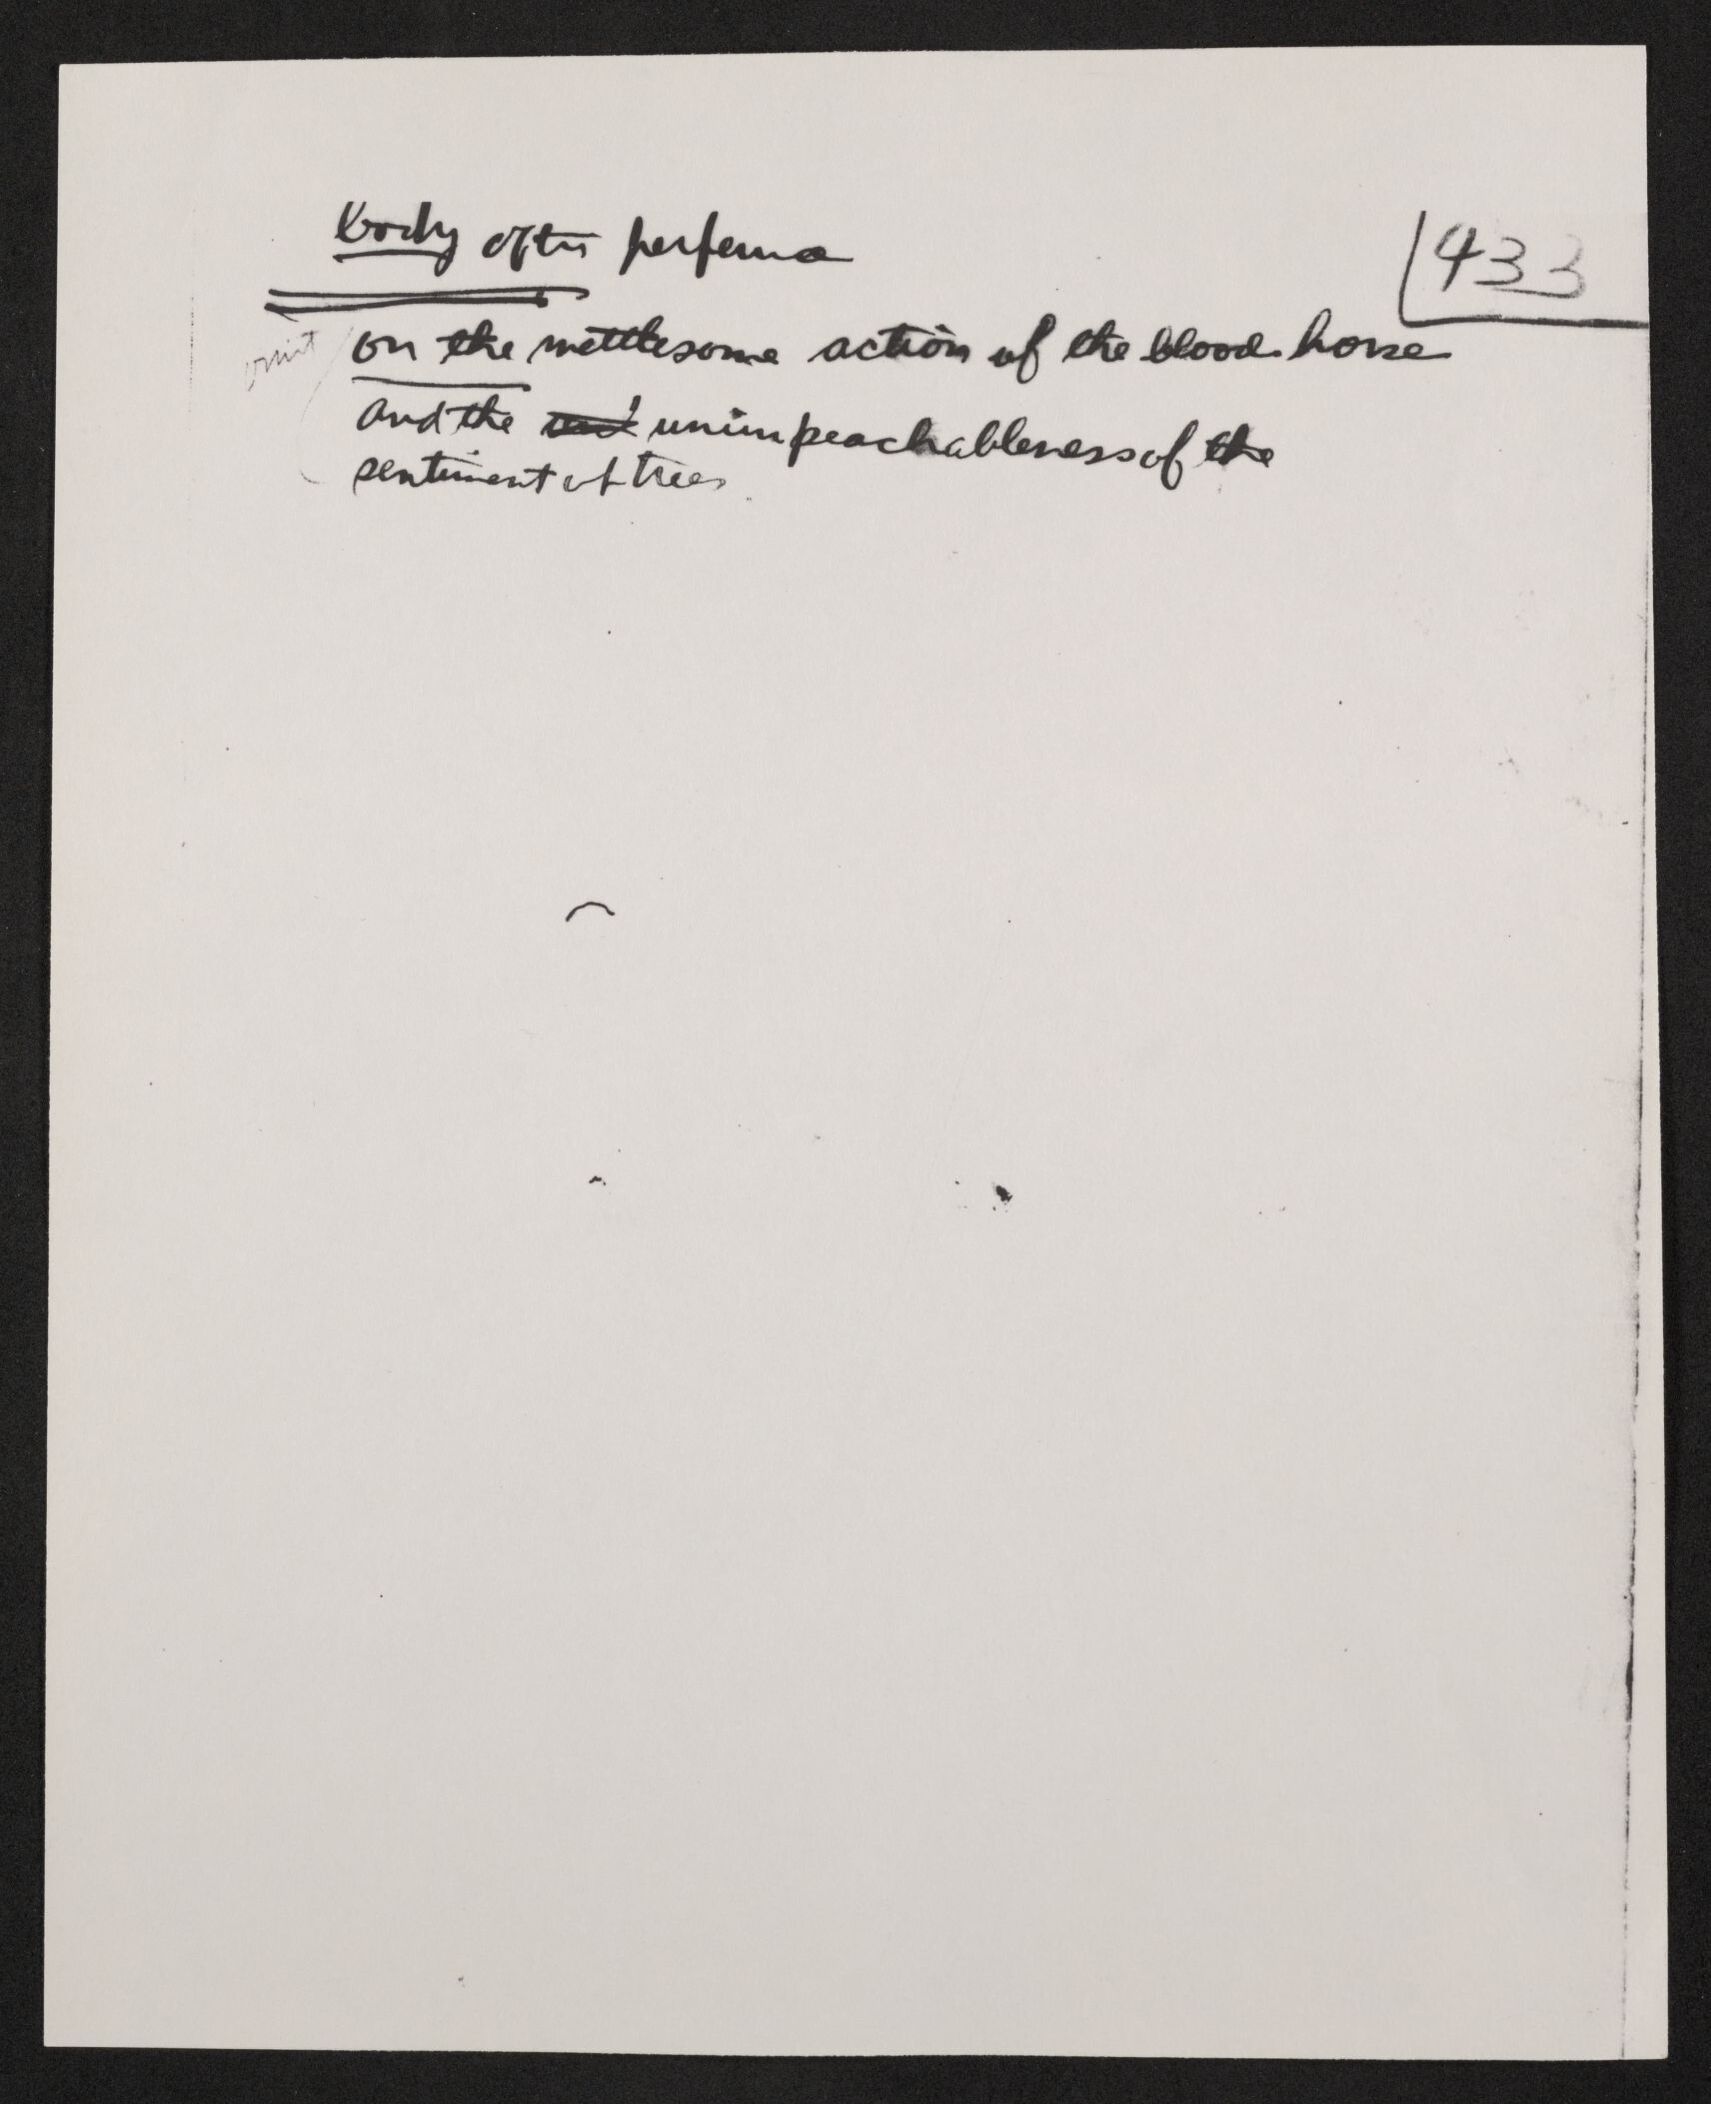 body after perfume
433
omit on the mettlesome action of the blood horse
and the unimpeachableness of the
sentiment of trees